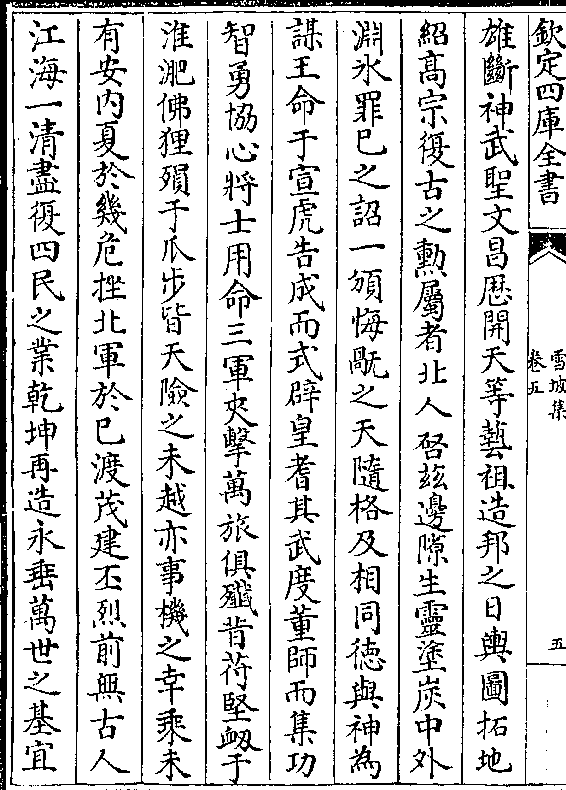 欽定四庫全書
雪坡集
卷五
五
雄斷神武聖文昌厯開天等藝祖造邦之日輿圖拓地
紹髙宗復古之勲屬者北人啓兹邊隙生靈塗炭中外
淵氷罪已之詔一頒悔旤之天隨格及相同徳與神為
謀王命于宣虎告成而式辟皇耆其武度董師而集功
智勇協心将士用命三軍夾擊萬旅俱殲昔苻堅衂于
淮淝佛狸殞于瓜歩皆天險之未越亦事機之幸乘未
有安内夏於幾危挫北軍於已渡茂建丕烈前無古人
江海一清盡復四民之業乾坤再造永垂萬世之基宜